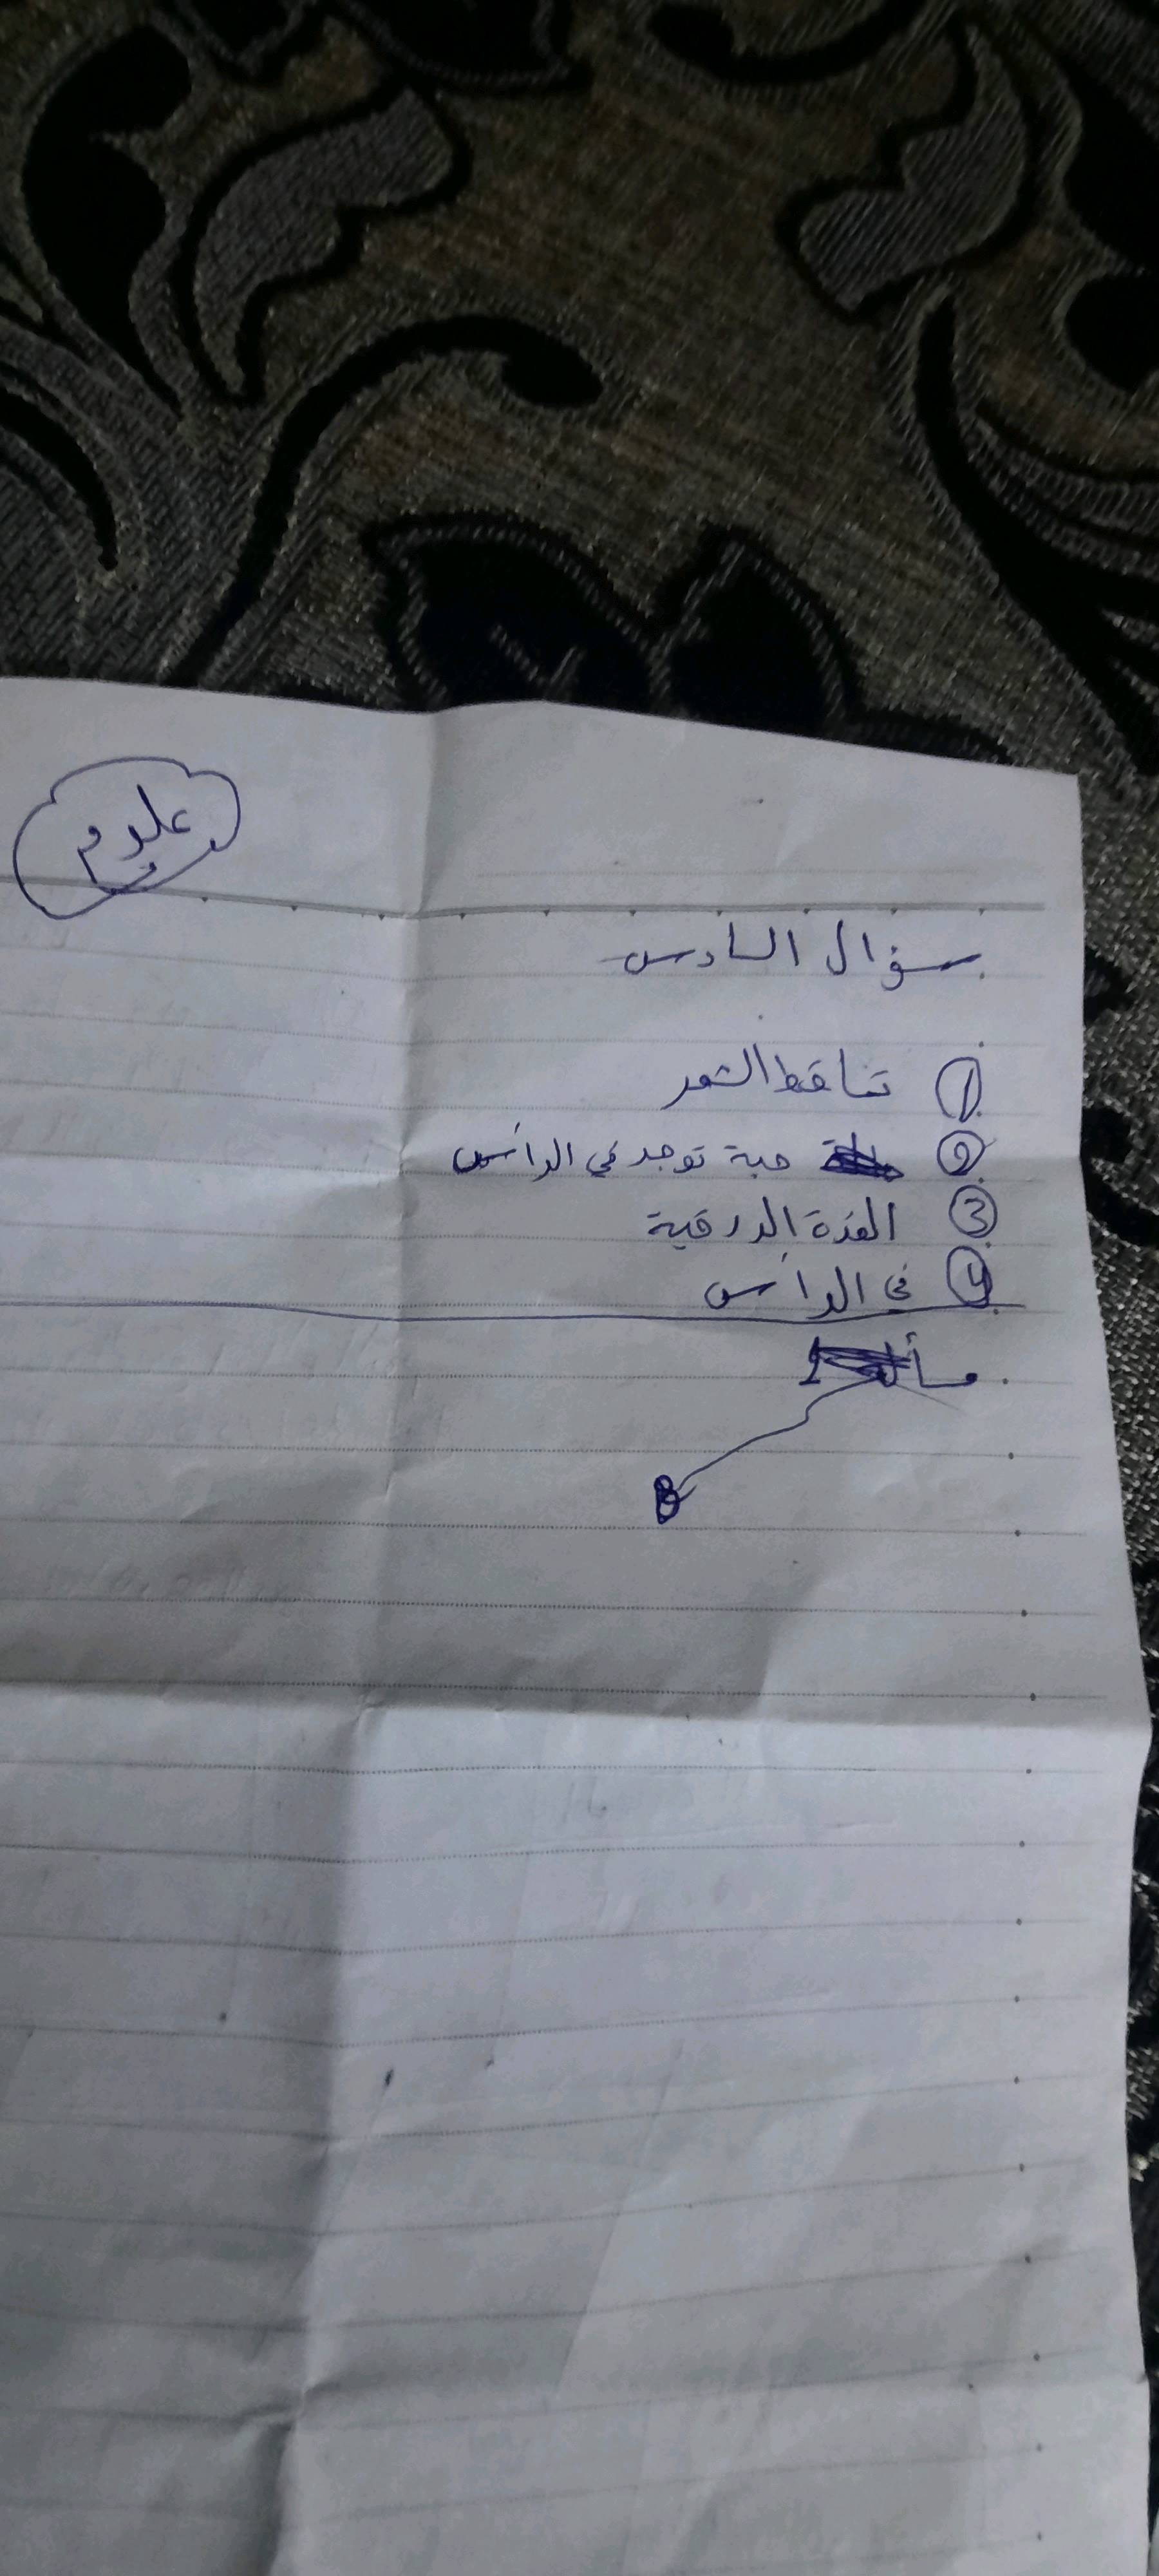 علوم
سؤال السادس
① تساقط الشعر
② حبة توجد في الرأس
③ الغدة الدرقية
④ في الرأس
B